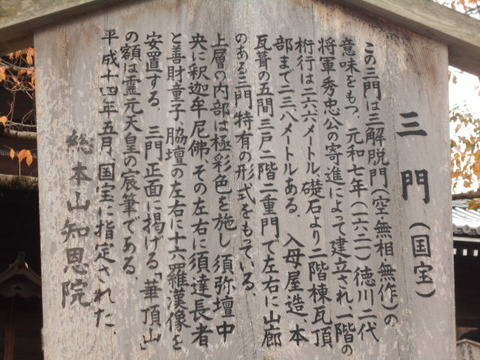 三門(国宝)
この三門は三解脱門(空・無相・無作)の
意味をもつ。元和七年(一六二一)徳川二代
将軍秀忠公の寄進によって建立され一階の
桁行は二六・六メートル、礎石より二階棟瓦頂
部まで二三・八メートルある。入母屋造、本
瓦葺の五間三戸二階二重門で左右に山廊
のある三門特有の形式をもっている。
上層の内部は極彩色を施し須弥壇中
央に釈迦牟尼佛、その左右に須達長者
と善財童子、脇壇の左右に十六羅漢像を
安置する。三門正面に掲げる「華頂山」
の額は霊元天皇の宸筆である。
平成十四年五月、国宝に指定された。
総本山知恩院